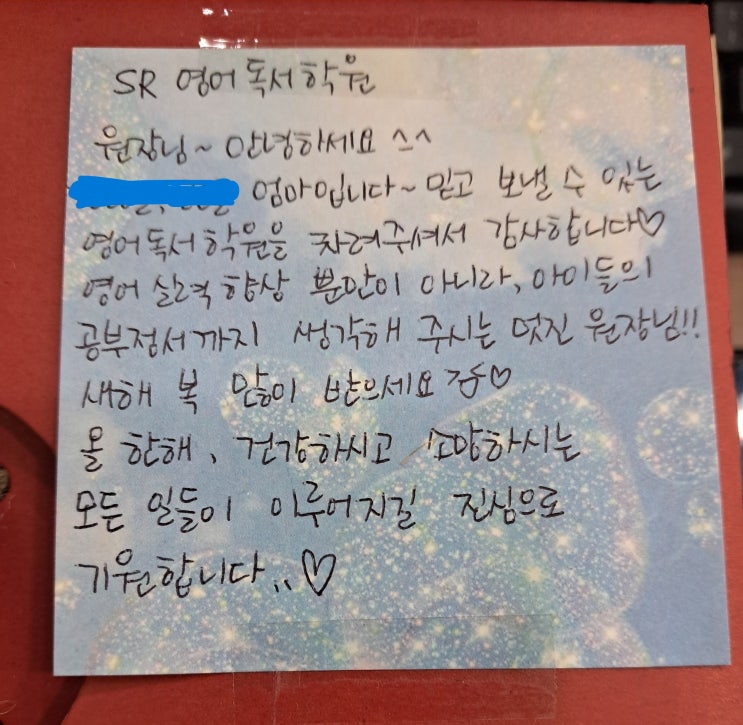 SR 영어독서학원
원장님~ 안녕하세요 ^^
엄마입니다~ 믿고 보낼 수 있는
영어독서학원을 차려주셔서 감사합니다♡
영어 실력 향상 뿐만이 아니라, 아이들의
공부정서까지 생각해 주시는 멋진 원장님!!
새해 복 많이 받으세요 ♡
올 한해, 건강하시고 소망하시는
모든 일들이 이루어지길 진심으로
기원합니다..♡